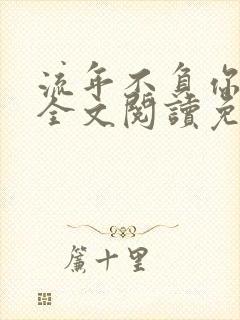 流年不負你
全文閱讀免
簾十里